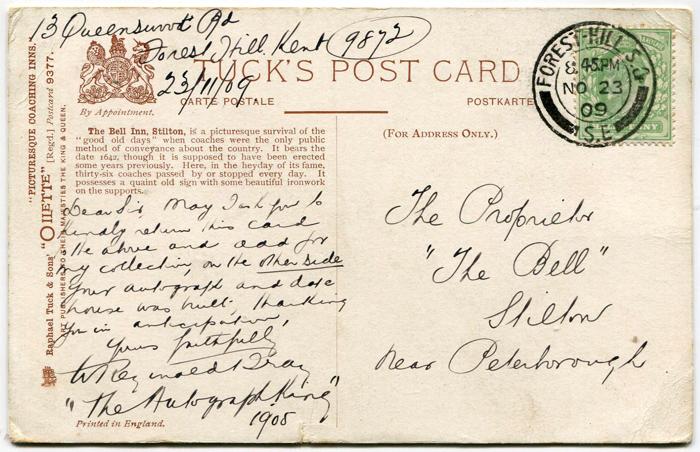 13 Queenswood Rd
Forest Hill. Kent
9872
23/11/09
TUCK'S POST CARD
CARTE POSTALE
POSTKARTE
By Appointment.
(FOR ADDRESS ONLY.)
"PICTURESQUE COACHING INNS."
[Regd.] Postcard 9377.
Raphael Tuck & Sons' "OILETTE"
ART PUBLISHERS TO THEIR MAJESTIES THE KING & QUEEN.
The Bell Inn, Stilton, is a picturesque survival of the
"good old days" when coaches were the only public
method of conveyance about the country. It bears the
date 1642, though it is supposed to have been erected
some years previously. Here, in the heyday of its fame,
thirty-six coaches passed by or stopped every day. It
possesses a quaint old sign with some beautiful ironwork
on the supports.
Dear Sir, May I ask you to
kindly return this card
to above and add for
my collection, on the other side
your autograph and date
house was built, thanking
you in anticipation,
Yours faithfully,
W Reginald Bray
"The Autograph King"
1908
Printed in England.
FOREST-HILL S.O
8 45 PM
NO 23
09
S.E
The Proprietor
"The Bell"
Stilton
near Peterborough